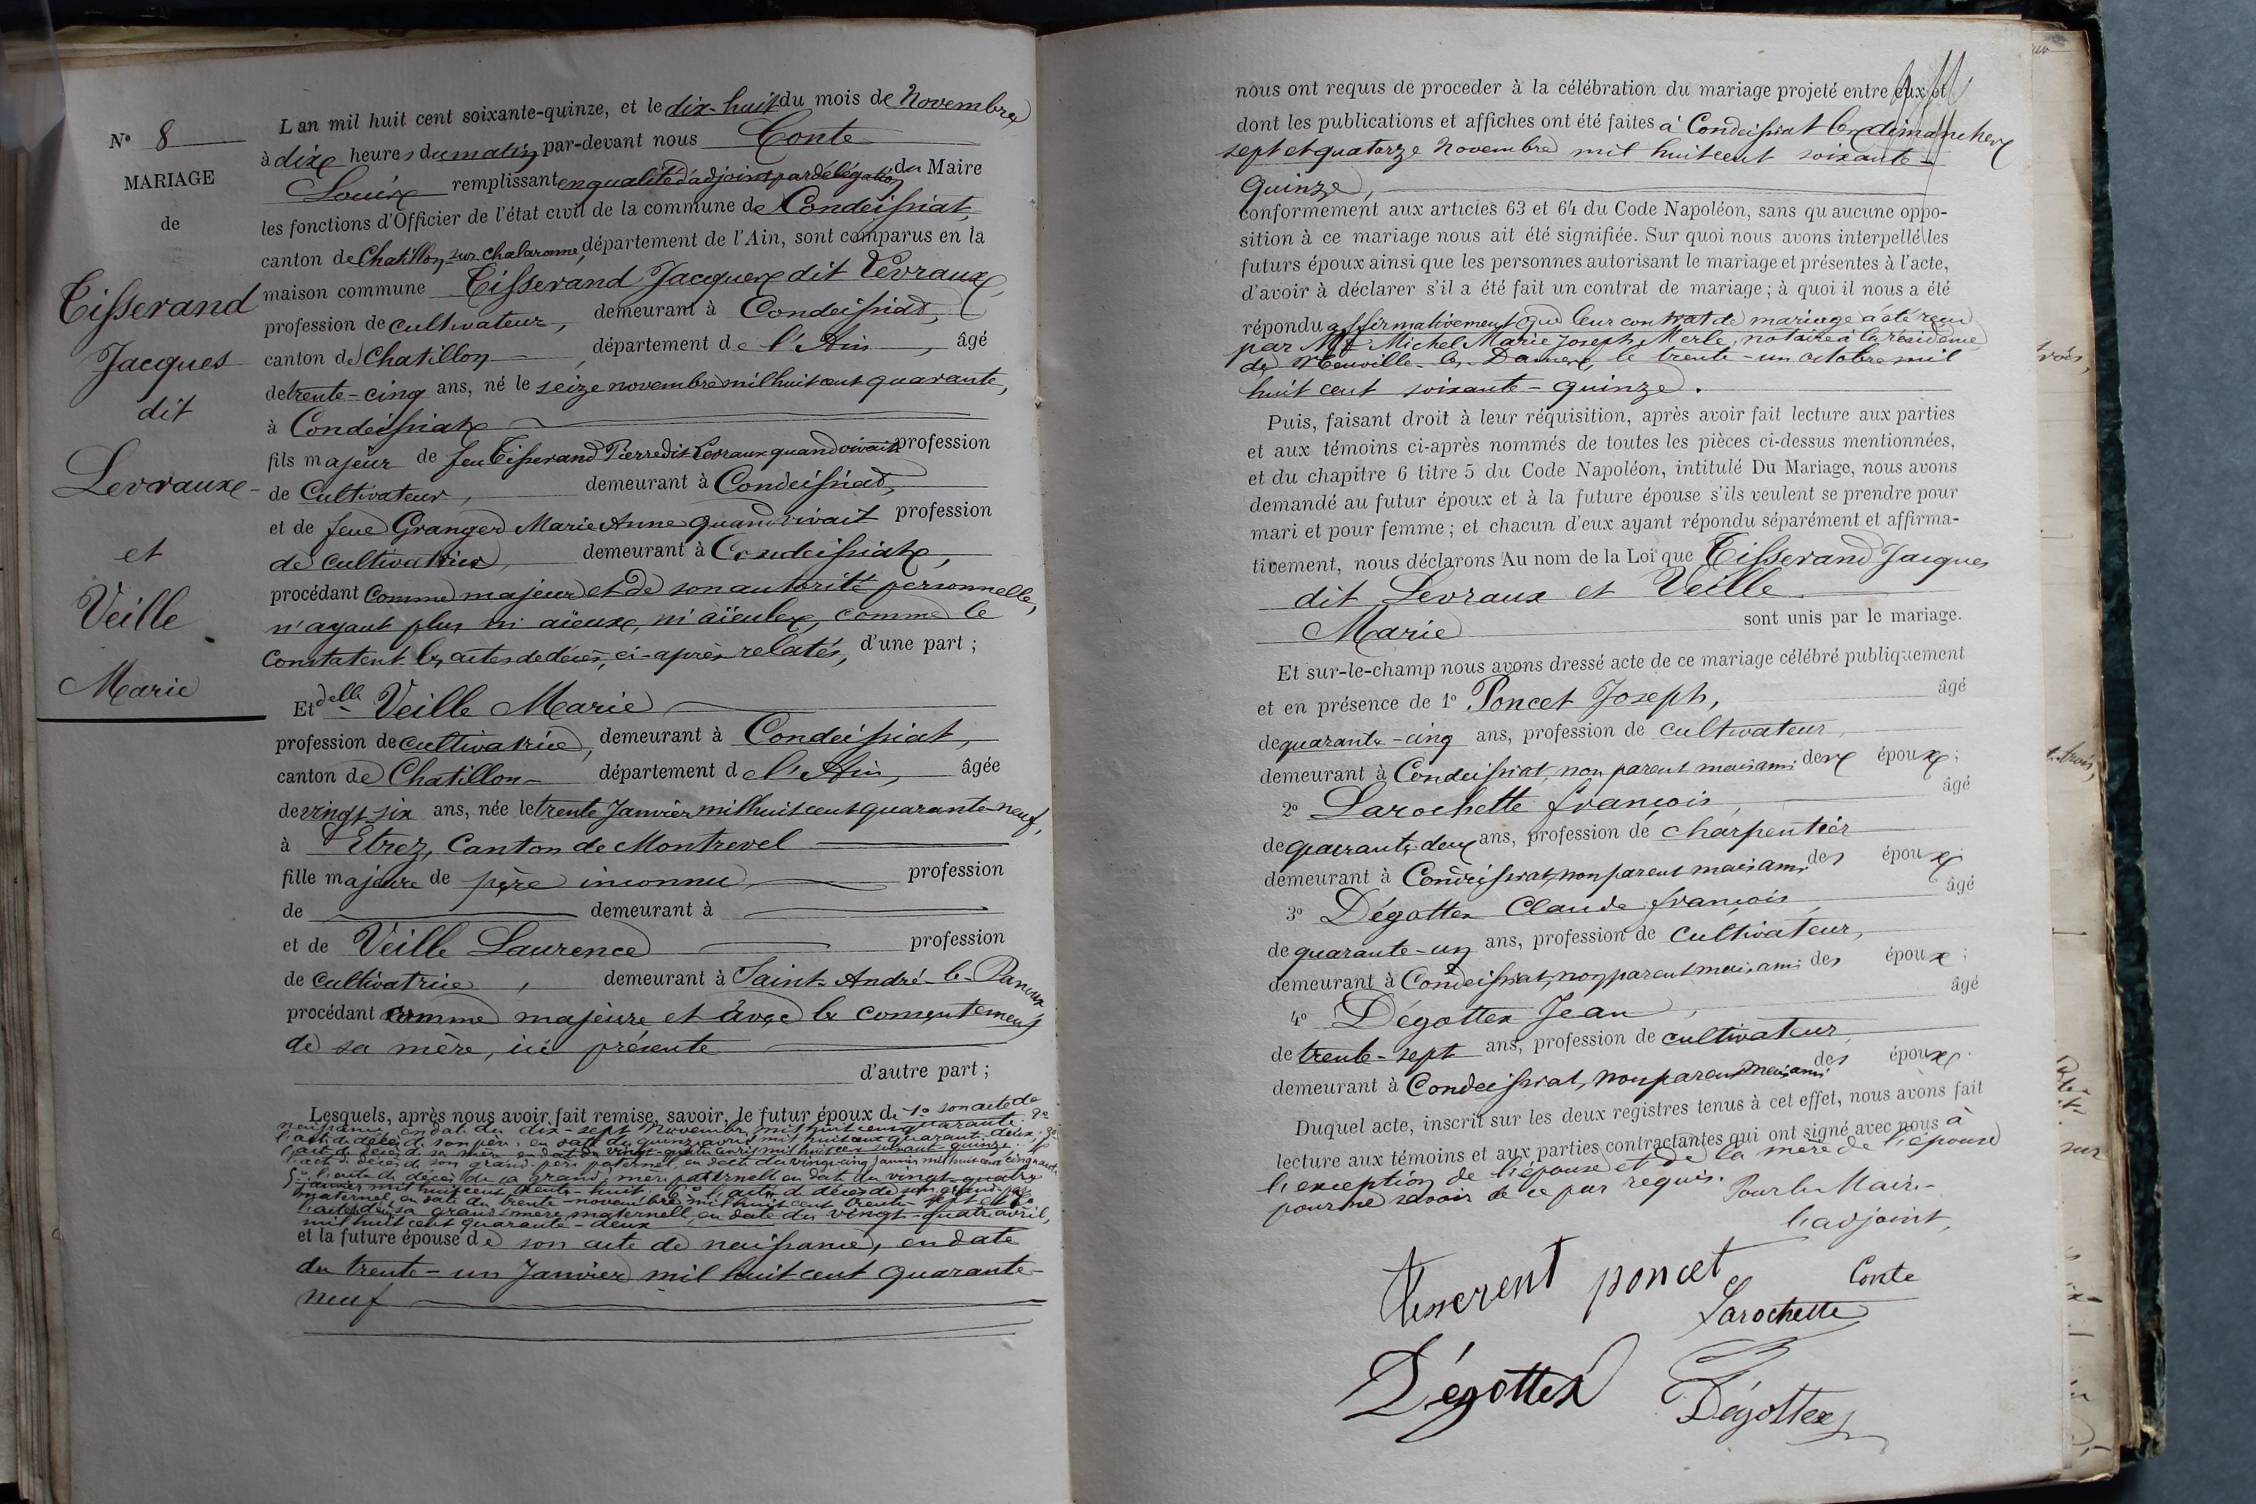 N° 8
MARIAGE
de
Tisserand
Jacques
dit
Levraux
et
Veille
Marie
L'an mil huit cent soixante-quinze, et le dix-huit du mois de Novembre
à dix heures du matin par-devant nous Conte
Louis remplissant en qualité d'adjoint par délégation du Maire
les fonctions d'Officier de l'état civil de la commune de Condeissiat,
canton de Chatillon-sur-Chalaronne, département de l'Ain, sont comparus en la
maison commune Tisserand Jacques dit Levraux,
profession de cultivateur, demeurant à Condeissiat,
canton de Chatillon, département de l'Ain, âgé
de trente-cinq ans, né le seize novembre mil huit cent quarante,
à Condeissiat
fils majeur de feu Tisserand Pierre dit Levraux quand vivait profession
de Cultivateur, demeurant à Condeissiat,
et de feue Granger Marie Anne quand vivait profession
de cultivatrice, demeurant à Condeissiat,
procédant comme majeur et de son autorité personnelle,
n'ayant plus ni aïeux, ni aïeules, comme le
constatent les actes de décès, ci-après relatés, d'une part ;
Et delle Veille Marie
profession de cultivatrice, demeurant à Condeissiat,
canton de Chatillon département de l'Ain, âgée
de vingt-six ans, née le trente Janvier mil huit cent quarante-neuf,
à Etrez, Canton de Montrevel
fille majeure de père inconnu profession
de demeurant à
et de Veille Laurence profession
de cultivatrice, demeurant à Saint-André-le-Panoux
procédant comme majeure et avec le consentement
de sa mère, ici présente
d'autre part ;
Lesquels, après nous avoir fait remise, savoir, le futur époux de 1° son acte de
naissance, en date du dix-sept Novembre mil huit cent quarante ; 2°
l'acte de décès de son père, en date du quinze avril mil huit cent quarante-deux ; 3°
l'acte de décès de sa mère en date du vingt-quatre avril mil huit cent soixante-quinze ; 4°
l'acte de décès de son grand-père paternel, en date du vingt-cinq janvier mil huit cent cinquante
5° l'acte de décès de sa grand'mère paternelle en date du vingt-quatre
janvier mil huit cent trente-huit, 6° l'acte de décès de son grand-père
maternel, en date du trente novembre mil huit cent trente-sept et 7°
l'acte de sa grand'mère maternelle, en date du vingt-quatre avril,
mil huit cent quarante-deux
et la future épouse de son acte de naissance, en date
du trente-un Janvier mil huit cent quarante-
neuf
nous ont requis de procéder à la célébration du mariage projeté entre eux et
dont les publications et affiches ont été faites à Condeissiat les dimanches
sept et quatorze Novembre mil huit cent soixante-
quinze,
conformément aux articles 63 et 64 du Code Napoléon, sans qu'aucune oppo-
sition à ce mariage nous ait été signifiée. Sur quoi nous avons interpellé les
futurs époux ainsi que les personnes autorisant le mariage et présentes à l'acte,
d'avoir à déclarer s'il a été fait un contrat de mariage ; à quoi il nous a été
répondu affirmativement que leur contrat de mariage a été reçu
par Me Michel Marie Joseph Merle, notaire à la résidence
de Neuville-les-Dames, le trente-un octobre mil
huit cent soixante-quinze.
Puis, faisant droit à leur réquisition, après avoir fait lecture aux parties
et aux témoins ci-après nommés de toutes les pièces ci-dessus mentionnées,
et du chapitre 6 titre 5 du Code Napoléon, intitulé Du Mariage, nous avons
demandé au futur époux et à la future épouse s'ils veulent se prendre pour
mari et pour femme ; et chacun d'eux ayant répondu séparément et affirma-
tivement, nous déclarons Au nom de la Loi que Tisserand Jacques
dit Levraux et Veille
Marie sont unis par le mariage.
Et sur-le-champ nous avons dressé acte de ce mariage célébré publiquement
et en présence de 1° Poncet Joseph, âgé
de quarante-cinq ans, profession de cultivateur,
demeurant à Condeissiat, non parent mais ami des époux ;
2° Larochette françois, âgé
de quarante-deux ans, profession de charpentier
demeurant à Condeissiat, non parent mais ami des époux ;
3° Dégottex Claude françois, âgé
de quarante-un ans, profession de cultivateur,
demeurant à Condeissiat, non parent mais ami des époux ;
4° Dégottex Jean, âgé
de trente-sept ans, profession de cultivateur,
demeurant à Condeissiat, non parent mais ami des époux.
Duquel acte, inscrit sur les deux registres tenus à cet effet, nous avons fait
lecture aux témoins et aux parties contractantes qui ont signé avec nous à
l'exception de l'épouse et de la mère de l'épouse
pour ne savoir de ce par requis. Pour le Maire
l'adjoint,
Tisserent poncet Conte
Larochette
Dégottex Dégottex